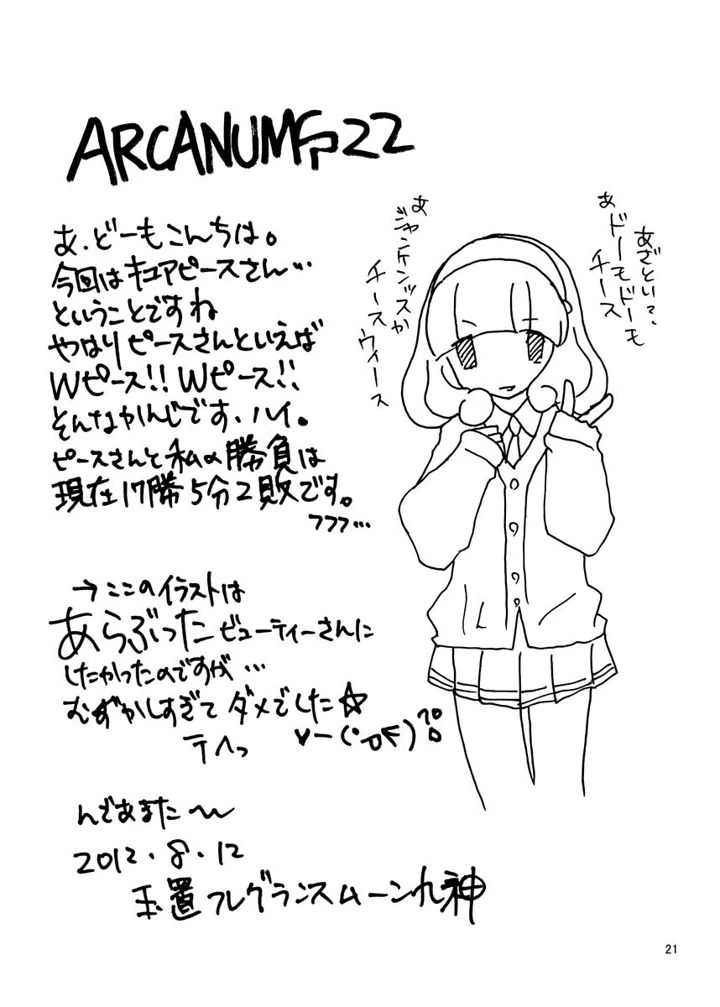 ARCANUMS22
あ、どーもこんちは。
今回はキュアピースさん…
ということですね
やはりピースさんといえば
Wピース!! Wピース!!
そんなかんじです、ハイ。
ピースさんと私の勝負は
現在17勝5分2敗です。
フフフ…
あざとい?、
あ ドーモドーモ
チース
あ
ジャンケンッスか
チース ウィース
→ここのイラストは
あらぶったビューティーさんに
したかったのですが…
むずかしすぎてダメでした☆
テヘっ
んであまた〜
2012.8.12
玉置フレグランスムーン九神
21